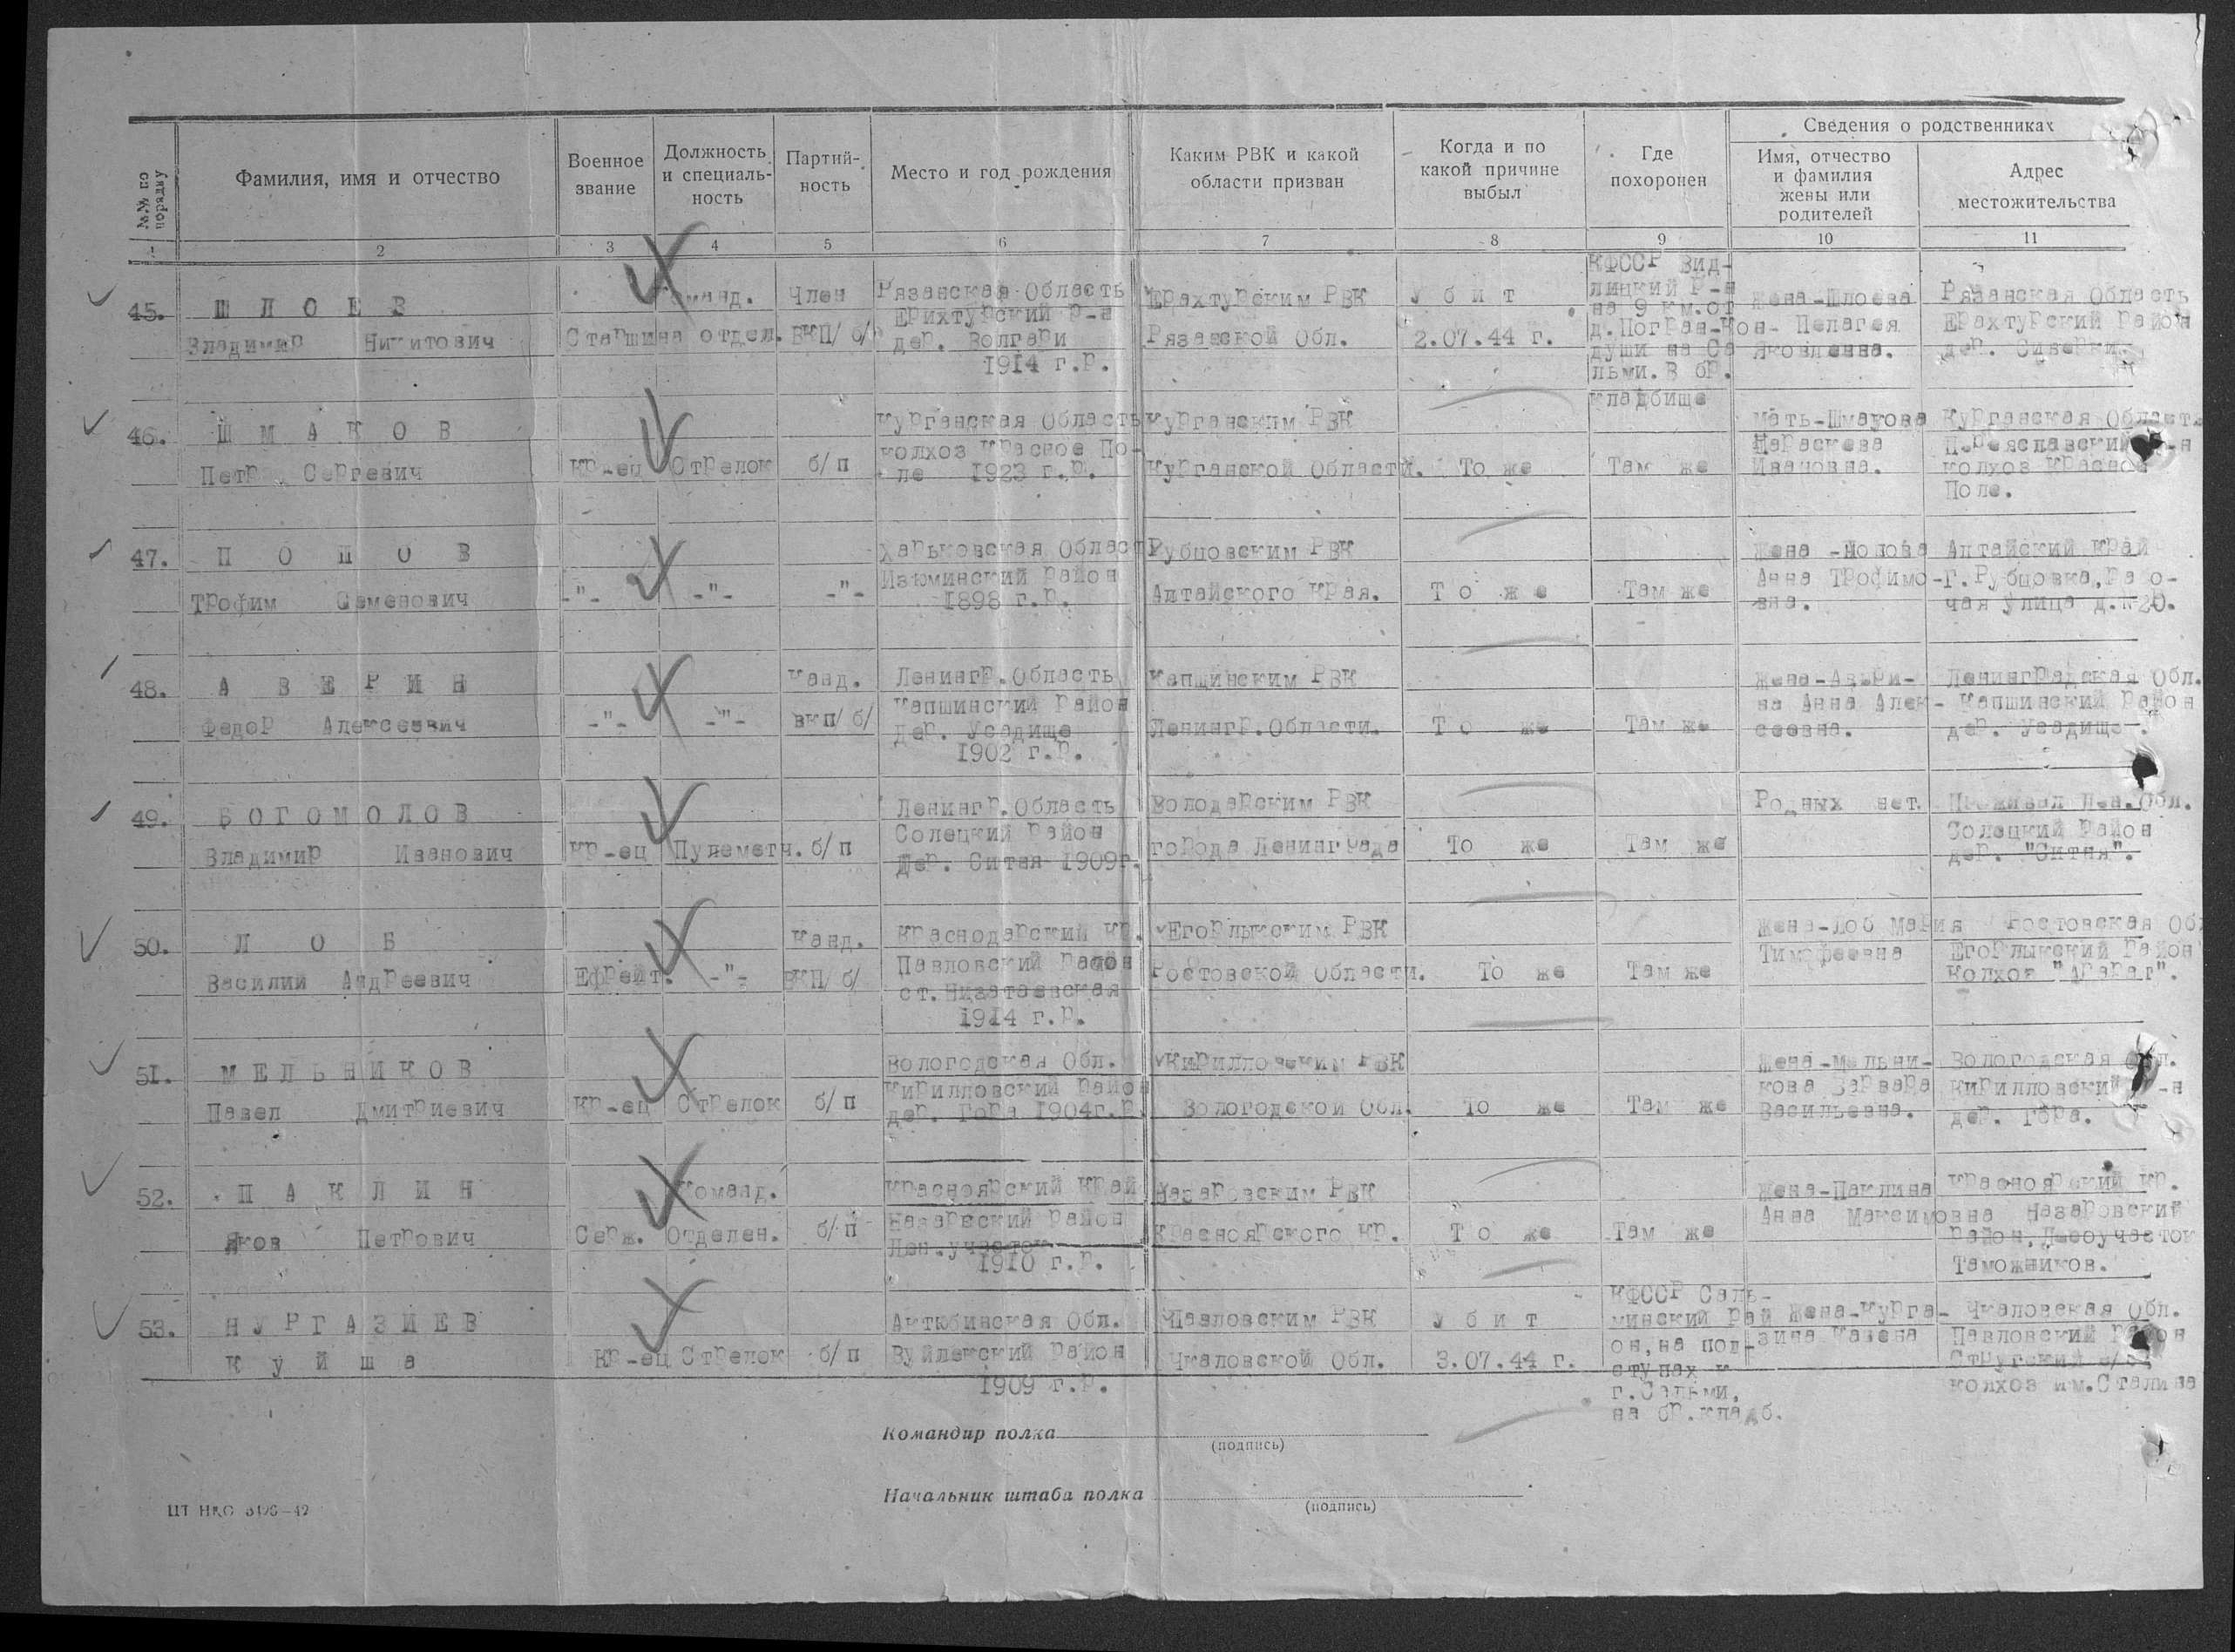 №№ по порядку
Фамилия, имя и отчество
Военное звание
Должность и специаль-ность
Партий-ность
Место и год рождения
Каким РВК и какой области призван
Когда и по какой причине выбыл
Где похоронен
Сведения о родственниках
Имя, отчество и фамилия жены или родителей
Адрес местожительства
1 2 3 4 5 6 7 8 9 10 11
45.
ШЛОЕВ
Владимир Никитович
Старшина
Команд.
отдел.
Член
ВКП/б/
Рязанская Область
Ерихтурский р-н
дер. Волгари
1914 г.р.
Ерахтурским РВК
Рязанской Обл.
Убит
2.07.44 г.
КФССР Вид-
лицкий р-н
на 9 км.от
д.Погран-Кон-
души на Са
льми. В бр.
кладбище
Жена-Шлоева
Пелагея
Яковлевна.
Рязанская Область
Ерахтурский район
дер.
46.
ШМАКОВ
Петр Сергевич
Кр-ец
Стрелок
б/п
Курганская Область
колхоз Красное По-
ле 1923 г.р.
Курганским РВК
Курганской Области.
То же
Там же
Мать-Шмакова
Параскева
Ивановна.
Курганская Област.
колхоз Красное
Поле.
47.
ПОПОВ
Трофим Семенович
-"-
-"-
-"-
Харьковская Област
Изюминский район
1898 г.р.
Рубцовским РВК
Алтайского Края.
То же
Там же
Жена -Попова
Анна Трофимо-
вна.
Алтайский край
г.Рубцовка,Рабо-
чая улица д.№20.
48.
АВЕРИН
Федор Алексеевич
-"-
-"-
Канд.
ВКП/б/
Ленингр.Область
Капшинский район
дер. Усадище
1902 г.р.
Капшинским РВК
Ленингр.Области.
То же
Там же
Жена-Авери-
на Анна Алек-
сеевна.
Ленинградская Обл.
Капшинский район
дер. Усадище.
49.
БОГОМОЛОВ
Владимир Иванович
Кр-ец
Пулеметч.
б/п
Ленингр.Область
Солецкий район
Дер. Ситня 1909г.
Володарским РВК
города Ленинграда
То же
Там же
Родных нет.
Проживал Лен.Обл.
Солецкий район
дер. "Ситня".
50.
ЛОБ
Василий Андреевич
Ефрейт.
-"-
Канд.
ВКП/б/
Краснодарский кр.
Павловский район
1914 г.р.
Егорлыкским РВК
Ростовской Области.
То же
Там же
Жена-Лоб Мария
Тимофеевна
Ростовская Об
Егорлыкский район
колхоз "Арарат".
51.
МЕЛЬНИКОВ
Павел Дмитриевич
Кр-ец
Стрелок
б/п
Вологодская Обл.
Кирилловский район
дер. Гора 1904г.р.
Кирилловским РВК
Вологодской Обл.
То же
Там же
Жена-Мельни-
кова Варвара
Васильевна.
Вологодская Обл.
Кирилловский р-н
дер. Гора.
52.
ПАКЛИН
Яков Петрович
Серж.
Команд.
Отделен.
б/п
Красноярский Край
Назаровский район
Лен.участок
1910 г.р.
Назаровским РВК
Красноярского кр.
То же
Там же
Жена-Паклина
Анна Максимовна
Красноярский кр.
Назаровский
район, Лесоучасток
Таможников.
53.
НУРГАЗИЕВ
Куйша
Кр-ец
Стрелок
б/п
Актюбинская Обл.
район
1909 г.р.
Павловским РВК
Чкаловской Обл.
Убит
3.07.44 г.
КФССР Саль-
минский рай
он,на под-
ступах к
г.Сальми.
на бр.кладб.
Жена-Нурга-
зина
Чкаловская Обл.
Павловский район
колхоз им.Сталина
Командир полка
(подпись)
Начальник штаба полка
(подпись)